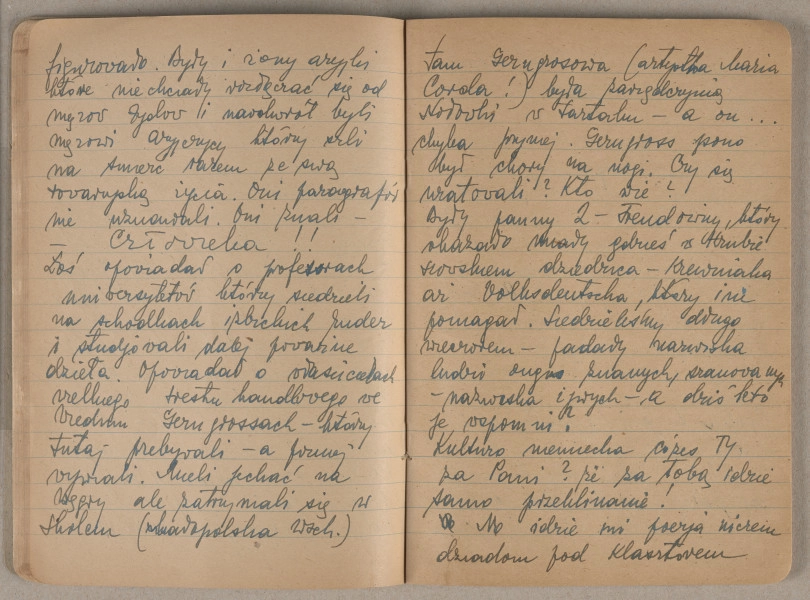 figurovado. Bydy i zony aryjki
które nie chciady rozdączać się od
męzov Zydov i navodwrót byli
męzowi Aryjczycy którzy szli
na śmierć razem ze swą
tovarzyszką życia. Oni paragrafóv
nie uznavali. Oni znali –
– Czlovieka !!
Łoś opoviadad o profesorach
universytetóv którzy siedzieli
na schodkach izbickich ruder
i studjovali dalej poważne
dzieła. Opoviadad o właścicielach
vielkiego trestu handlovego ve
Viedniu Gerngrossach – którzy
tutaj przebyvali – a poźniej
vyjechali. Mieli jechać na
Węgry ale zatrzymali się w
Skolem (małopolska Wsch.)
tam Gerngrosowa (artystka Maria
Corda!) byda parzędczynią
Nodovki v Tartaku – a on ...
chyba prymej. Gerngross pono
byd chory na nogi. Czy się
uratovali? Kto wie?
Bydy panny 2 – Frendoviny, którym
okazado miady gdzieś v Hrubie
szovskiem dziedzica – Krewniaka
aż Volksdeutscha, który im
pomagad. Siedzieliśmy dlugo
vieczorem – padady nazviska
ludzi ongiś znanych, szanovanych
– nazviska żyvych –, a dziś któ
je vspomni?
Kulturo niemiecka cóżeś Ty
za Pani? że za tobą idzie
samo przeklinanie!
No idzie mi poezja niczem
dziadom pod Klasztorem